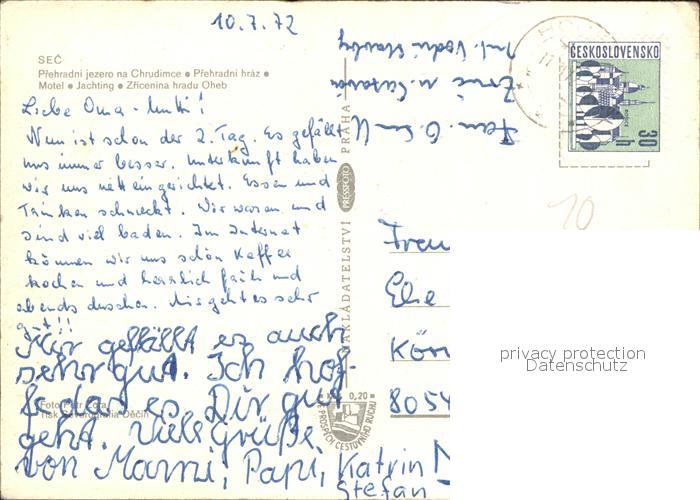 10.7.72
SEČ
Přehradní jezero na Chrudimce • Přehradní hráz •
Motel • Jachting • Zřícenina hradu Oheb
Liebe Oma-Mutti!
Nun ist schon der 2. Tag. Es gefällt
uns immer besser. Unterkunft haben
wir uns nett eingerichtet. Essen und
Trinken schmeckt. Wir waren und
sind viel baden. Im Internat
können wir uns schön Kaffee
kochen und herrlich früh und
abends duschen. Mir geht es sehr
gut!!
Mir gefällt es auch
sehr gut. Ich hof-
fe das es Dir gut
geht. Viele Grüße
von Mammi, Papi, Katrin
Stefan
Foto Petr Zora
Tisk Severografia Děčín
NAKLADATELSTVÍ PRESSFOTO PRAHA
0,20
ČESKOSLOVENSKO
30 h
10
Else
8054
privacy protection
Datenschutz